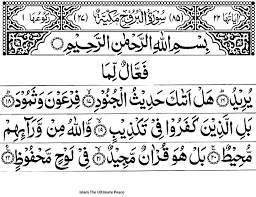 اٰيَاتُهَا ٢٢ (٨٥) سُوْرَةُ الْبُرُوْجِ مَكِّيَّةٌ (٢٧) رُكُوْعُهَا ١
بِسْمِ اللّٰهِ الرَّحْمٰنِ الرَّحِيْمِ
فَعَّالٌ لِّمَا
يُرِيْدُ ﴿١٦﴾ هَلْ اَتٰىكَ حَدِيْثُ الْجُنُوْدِ ﴿١٧﴾ فِرْعَوْنَ وَثَمُوْدَ ﴿١٨﴾
بَلِ الَّذِيْنَ كَفَرُوْا فِيْ تَكْذِيْبٍ ﴿١٩﴾ وَّاللّٰهُ مِنْ وَّرَآئِهِمْ
مُّحِيْطٌ ﴿٢٠﴾ بَلْ هُوَ قُرْاٰنٌ مَّجِيْدٌ ﴿٢١﴾ فِيْ لَوْحٍ مَّحْفُوْظٍ ﴿٢٢﴾
Islam The Ultimate Peace